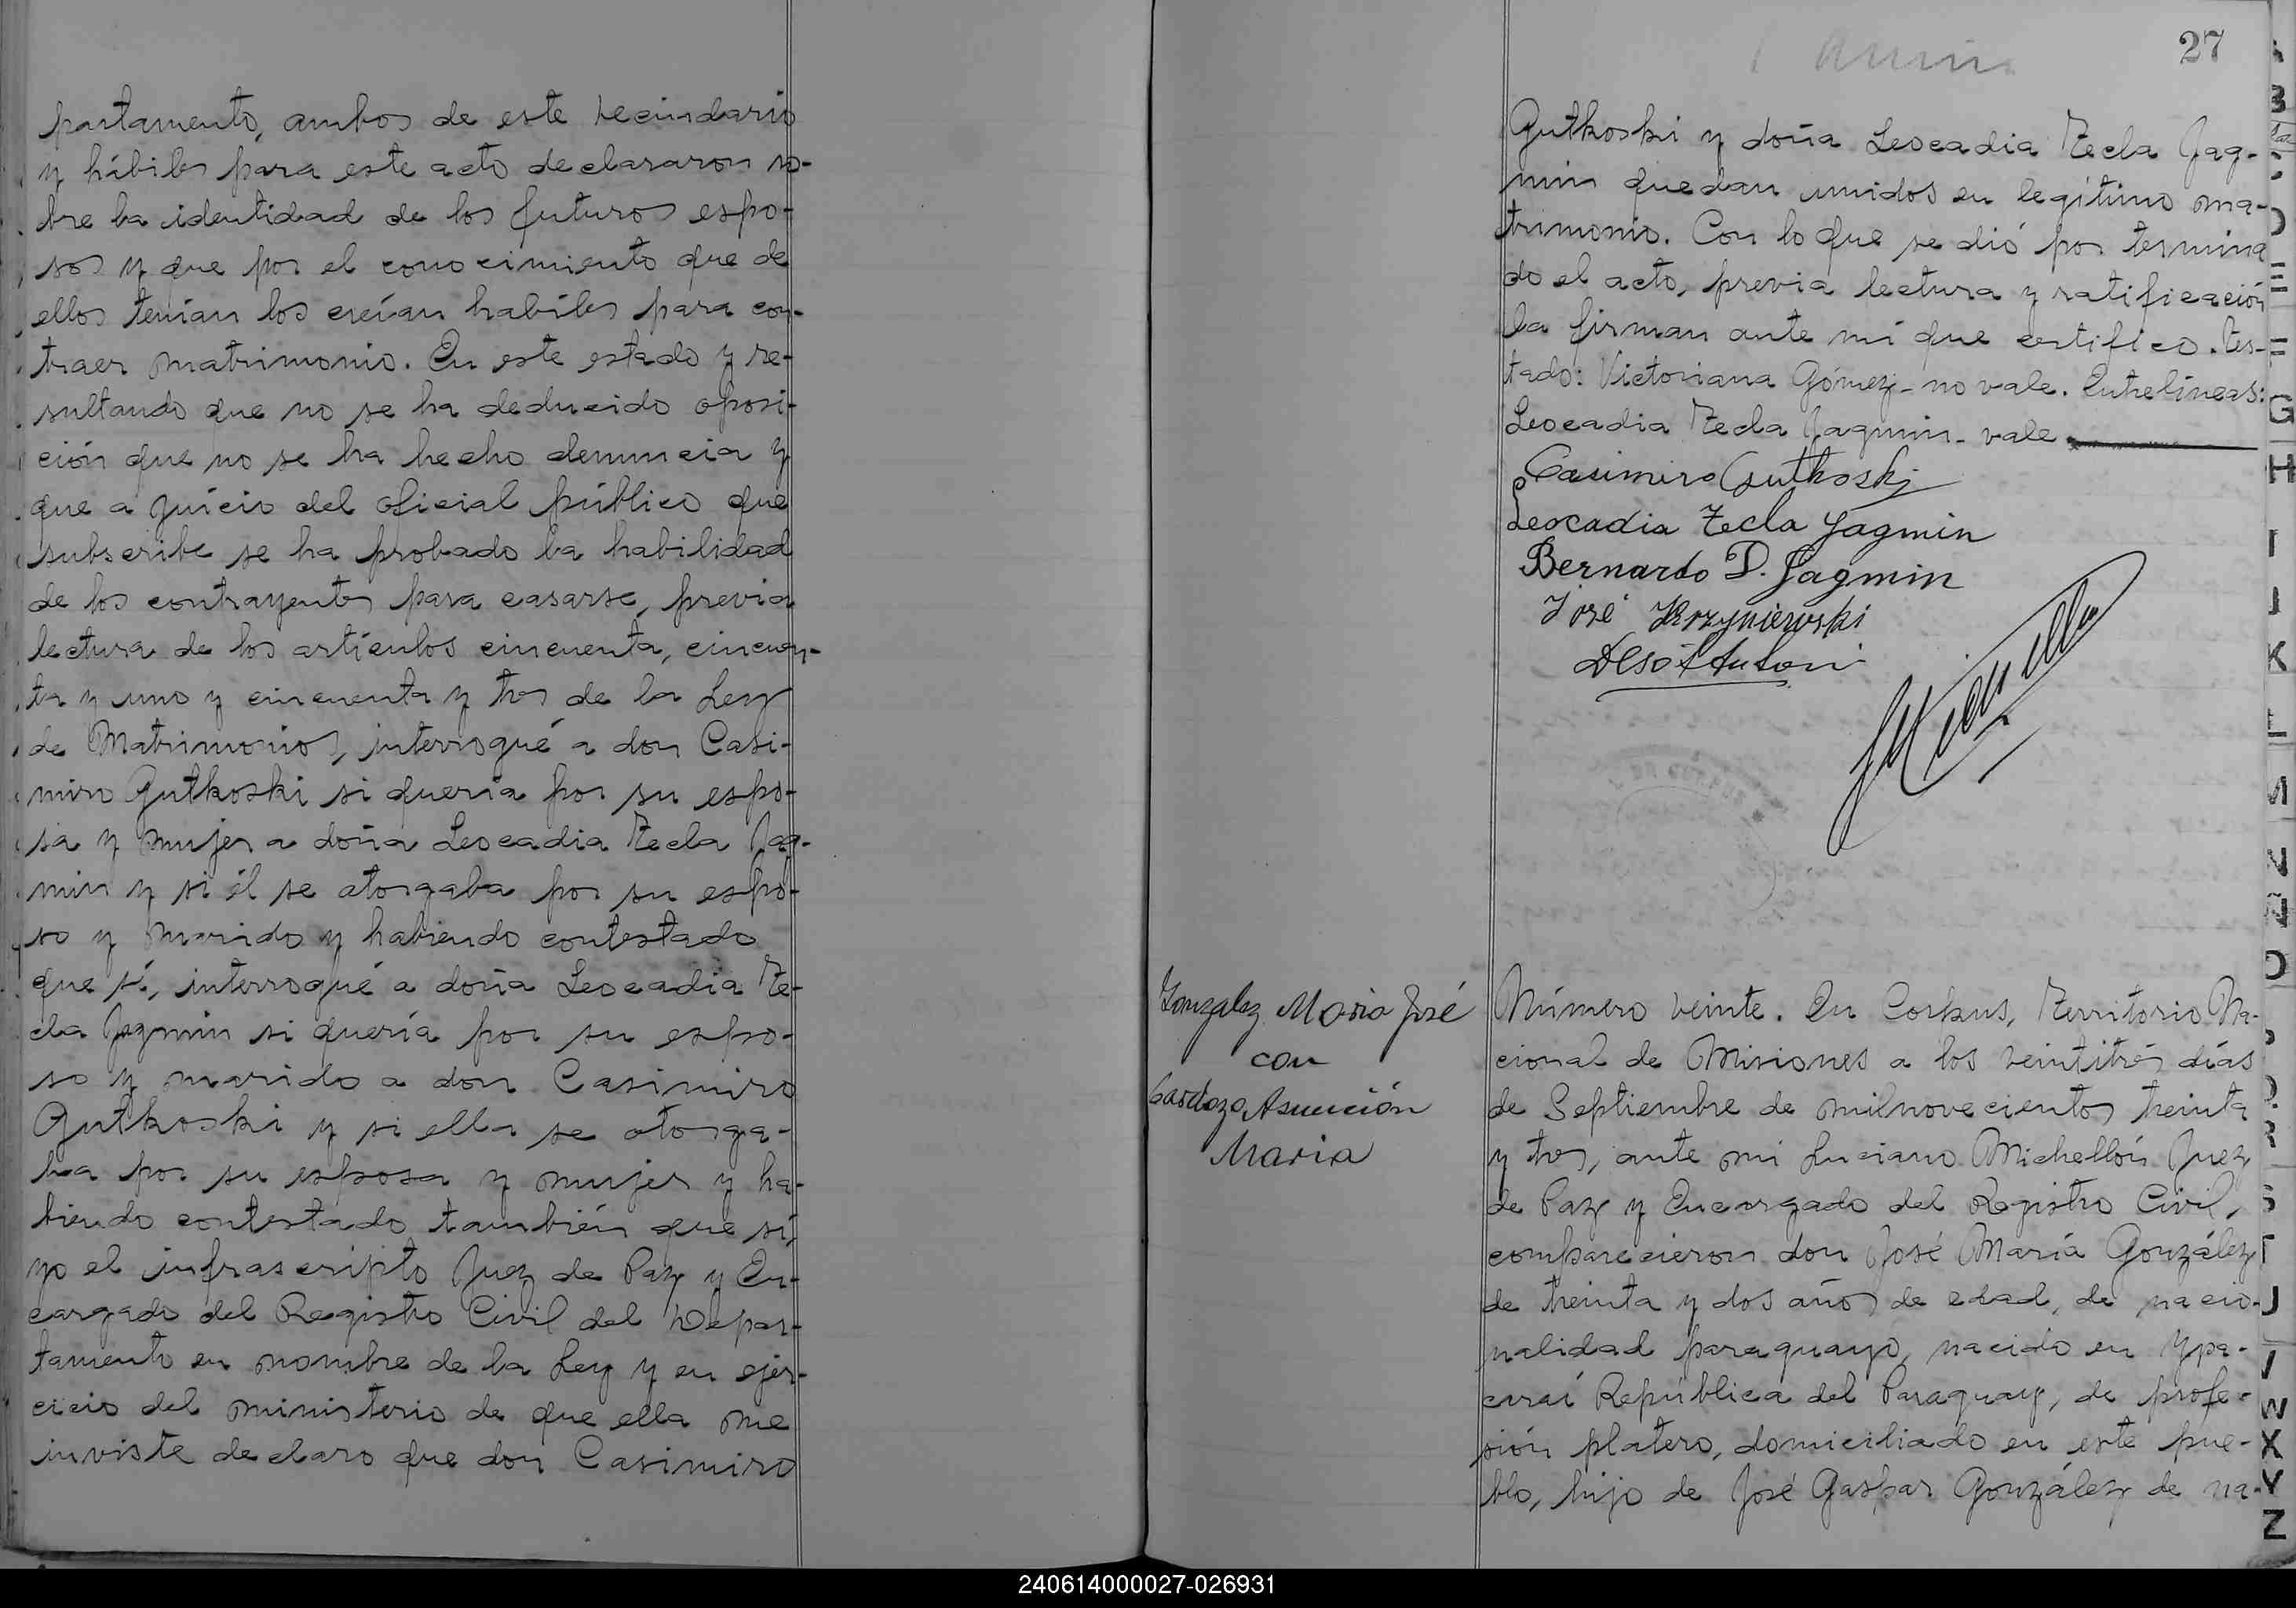 partamento, ambos de este vecindario
y hábiles para este acto declararon so-
bre la identidad de los futuros espo-
sos y que por el conocimiento que de
ellos tenían los creían habíles para con-
traer matrimonio. En este estado y re-
sultando que no se ha deducido oposi-
ción que no se ha hecho denuncia y
que a juício del oficial público que
subscribe se ha probado la habilidad
de los contrayentes para casarse, previa
lectura de los artículos cincuenta, cincuen-
ta y uno y cincuenta y tres de la Ley
de Matrimonios, interrogué a don Casi-
miro Gutkoski si quería por su espo-
sa y mujer a doña Leocadia Tecla Jag-
min y si él se otorgaba por su espo-
so y marido y habiendo contestado
que sí, interrogué a doña Leocadia Te-
cla Jagmin si quería por su espo-
so y marido a don Casimiro
Gutkoski y si ella se otorga-
ba por su esposa y mujer y ha-
biendo contestado también que sí,
yo el infrascripto Juez de Paz y En-
cargado del Registro Civil del Depar-
tamento en nombre de la Ley y en ejer-
cicio del ministerio de que ella me
inviste declaro que don Casimiro
27
Gutkoski y doña Leocadia Tecla Jag-
min quedan unidos en legítimo ma-
trimonio. Con lo que se dió por termina
do el acto, previa lectura y ratificación
la firman ante mí que certifico. Tes-
tado: Victoriana Gómez - no vale. Entrelíneas:
Leocadia Tecla Jagmin - vale
Casimiro Gutkoski
Leocadia Tecla Jagmin
Bernardo P. Jagmin
José Krzyniewski
Gonzalez Maria José
con
Cardozo Asunción
Maria
Número veinte. En Corpus, Territorio Na-
cional de Misiones a los veintitrés días
de Septiembre de milnovecientos treinta
y tres, ante mi Luciano Michellón Juez
de Paz y Encargado del Registro Civil,
comparecieron don José María González
de treinta y dos años de edad, de nacio-
nalidad paraguayo, nacido en Ypa-
caraí República del Paraguay, de profe-
sión platero, domiciliado en este pue-
blo, hijo de José Gaspar González de na-
240614000027-026931